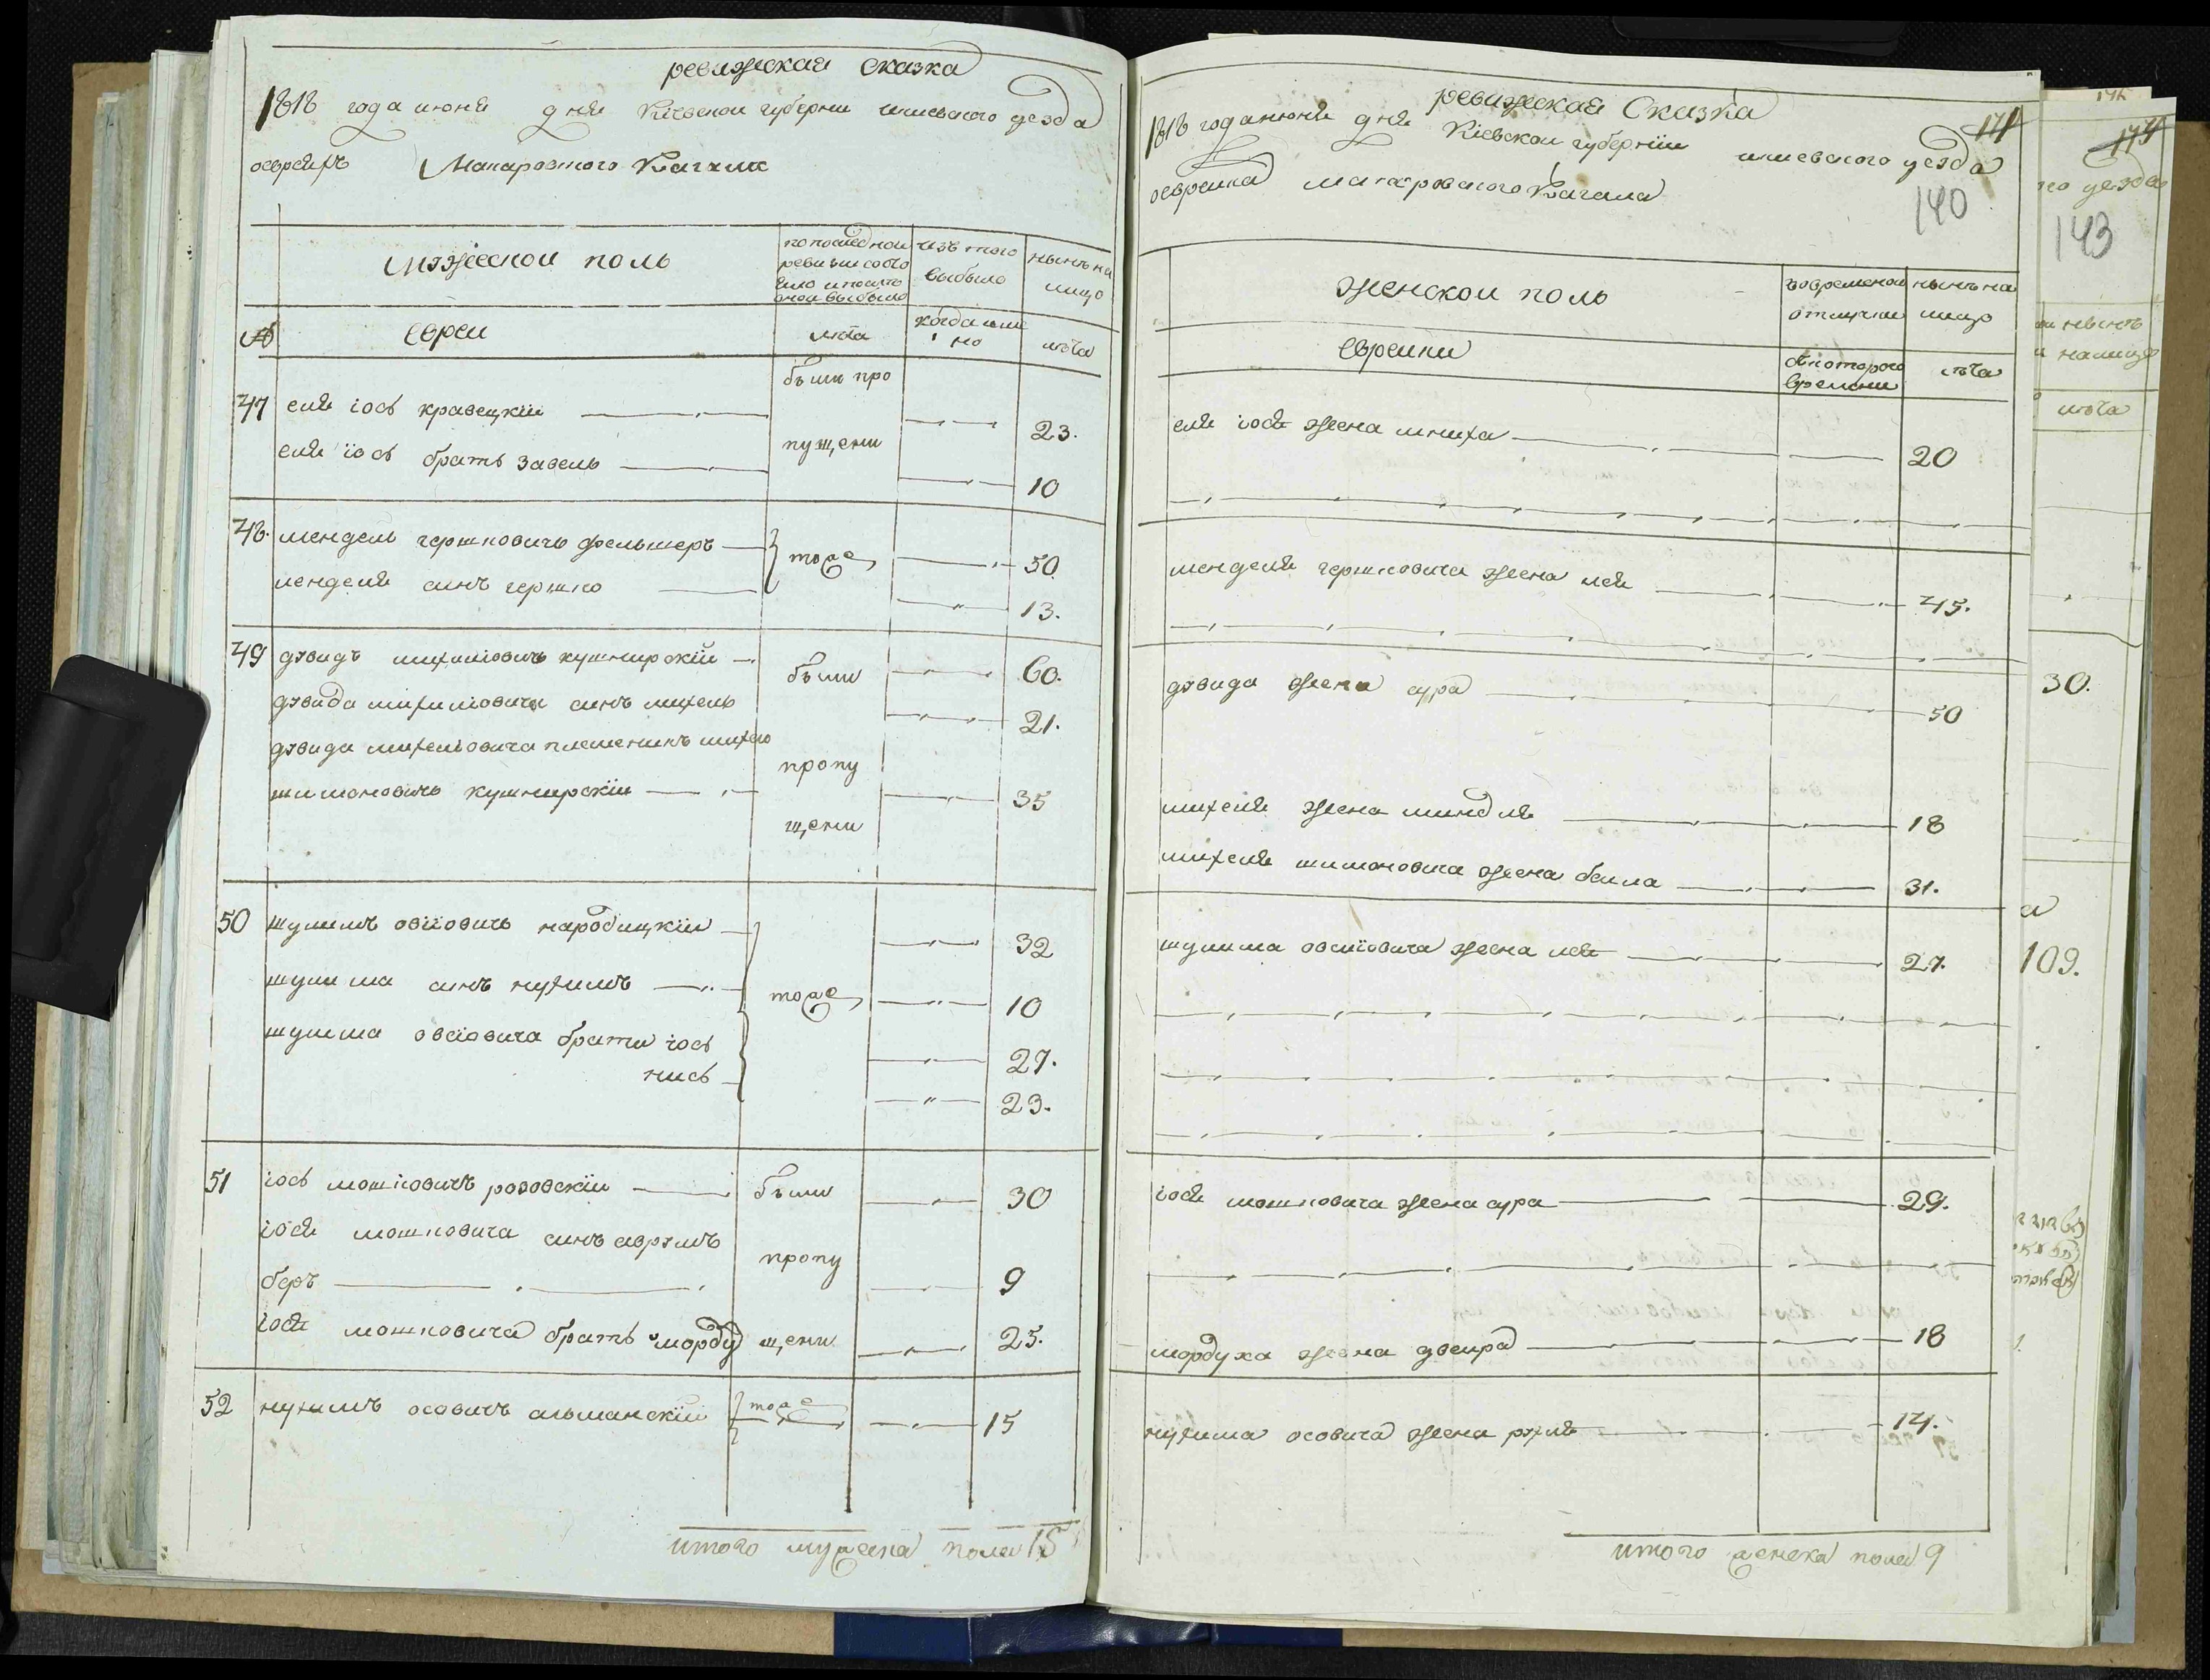 ревижская сказка
1818 года июня дня Кіевской губерни уезда
Макаровского Кагала
мужеской поль
по последной
ревизии состо
яло и после
оной выбыло
изъ того
выбыло
нынъ на
лицо
№
евреи
лета
когда имя
но
лъта
47
еля іось кравецкіи
были про
23.
еля іось братъ завель
пущени
10
48.
мендель гершковичъ фельшеръ
тоже
50
менделя синъ гершко
13.
49
дувидъ михилювичъ кушнирскій
были
60.
дувида михиліовича синъ михель
21.
дувида михеліовича племеникъ михель
пропу
шимоновичъ кушнирскій
35
щени
50
шулимъ овсіовичъ народицкій
32
шулима синъ нухимъ
тоже
10
шулима овсіовича брати іось
27.
нись
23.
51
іось мошковичъ розовскіи
были
30
іося мошковича синъ аврумъ
пропу
беръ
9
іося мошковича братъ морду
щени
25.
52
нухимъ осовичъ альманскій
тоже
15
итого мужеска полa 15
ревижская Сказка
171
1818 года июня дня Кіевской губерніи уезда
еврейка макаровского Кагала
140
женской поль
во временой
отлучки
нынъ на
лицо
еврейки
с которого
времени
лъта
еля іося жена
20
менделя гершковича жена лея
45.
дувида жена сура
50
михеля жена миндля
18
михеля шимоновича жена беила
31.
шулима овсиовича жена лея
27.
іося мошковича жена сура
29.
мордуха жена двеира
18
нухима осовича жена рухля
14.
итого женска пола 9
174
уезда
143
нынъ
налицо
лъта
30.
109.